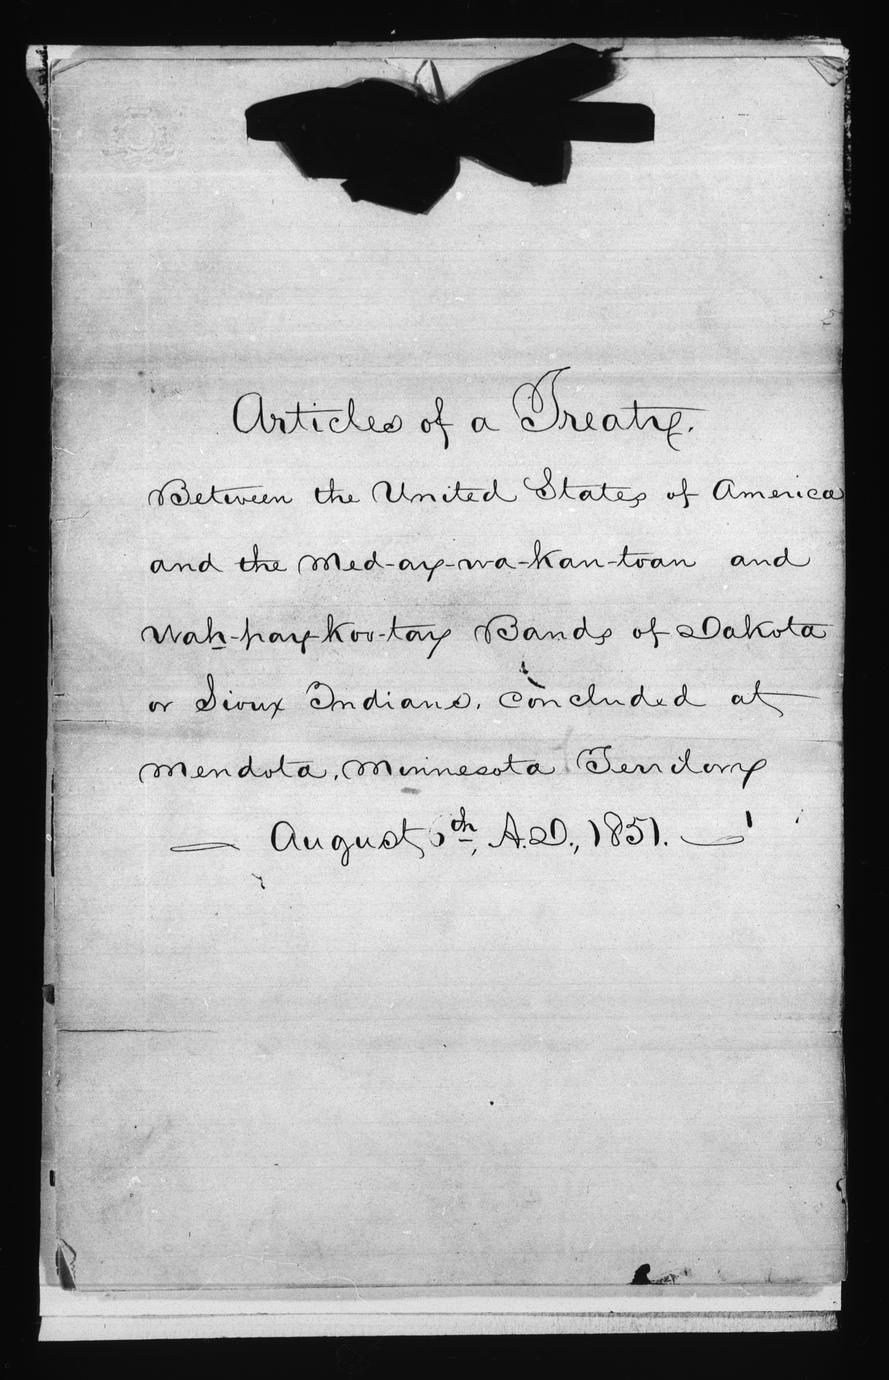 Articles of a Treaty.
Between the United States of America
and the Med-ay-wa-kan-toan and
Wah-pay-koo-tay Bands of Dakota
or Sioux Indians, concluded at
Mendota, Minnesota Territory
— August 5th, A.D., 1851. —